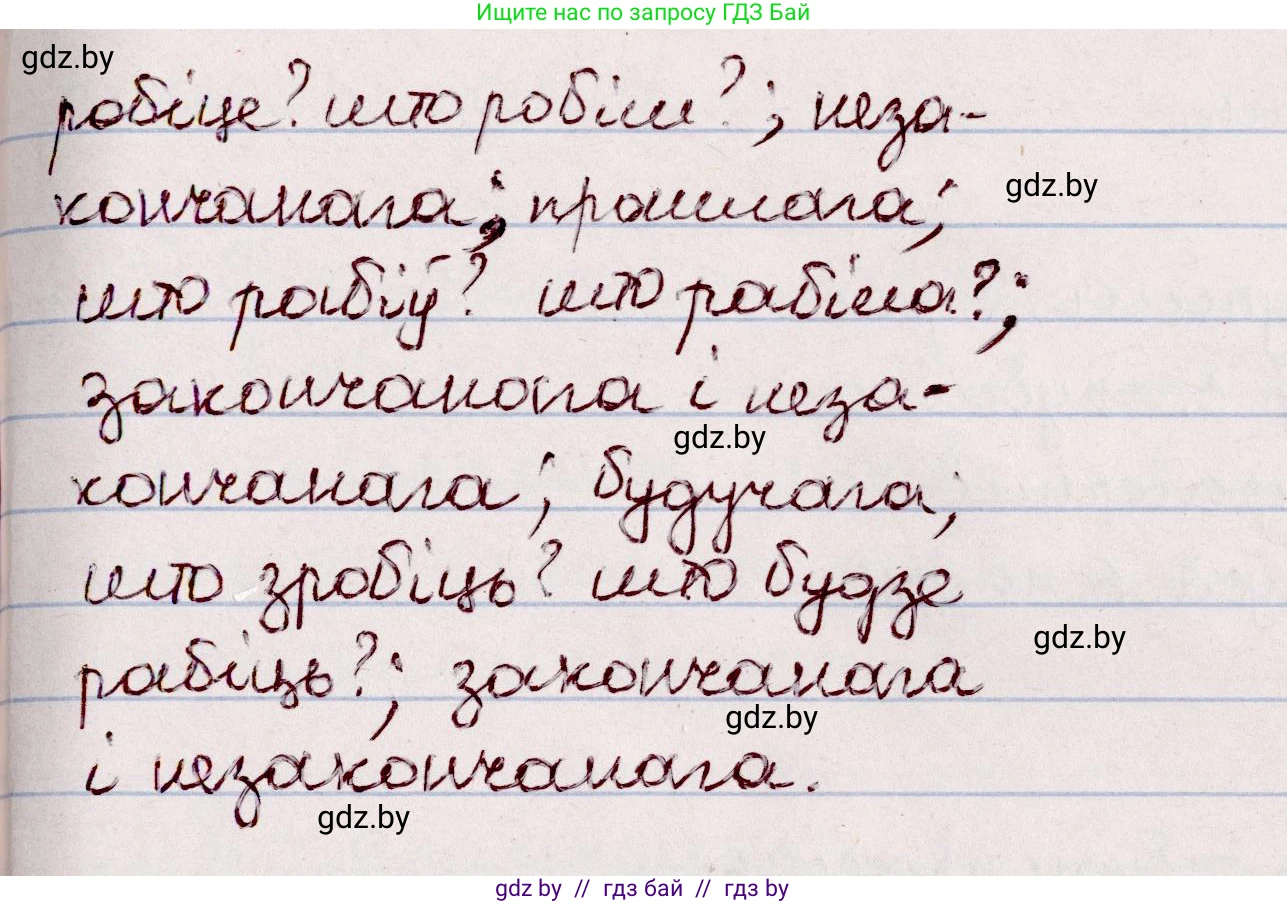 Ищите нас по запросу ГДЗ Бай
gdz.by
робіце? што робім?; неза-
кончанага; прошлага;
gdz.by
што рабіў? што рабіла?;
закончанага і неза-
gdz.by
кончанага; будучага;
што зробіць? што будзе
gdz.by
рабіць?; закончанага
gdz.by
і незакончанага.
gdz.by
gdz by // гдз бай // гдз by